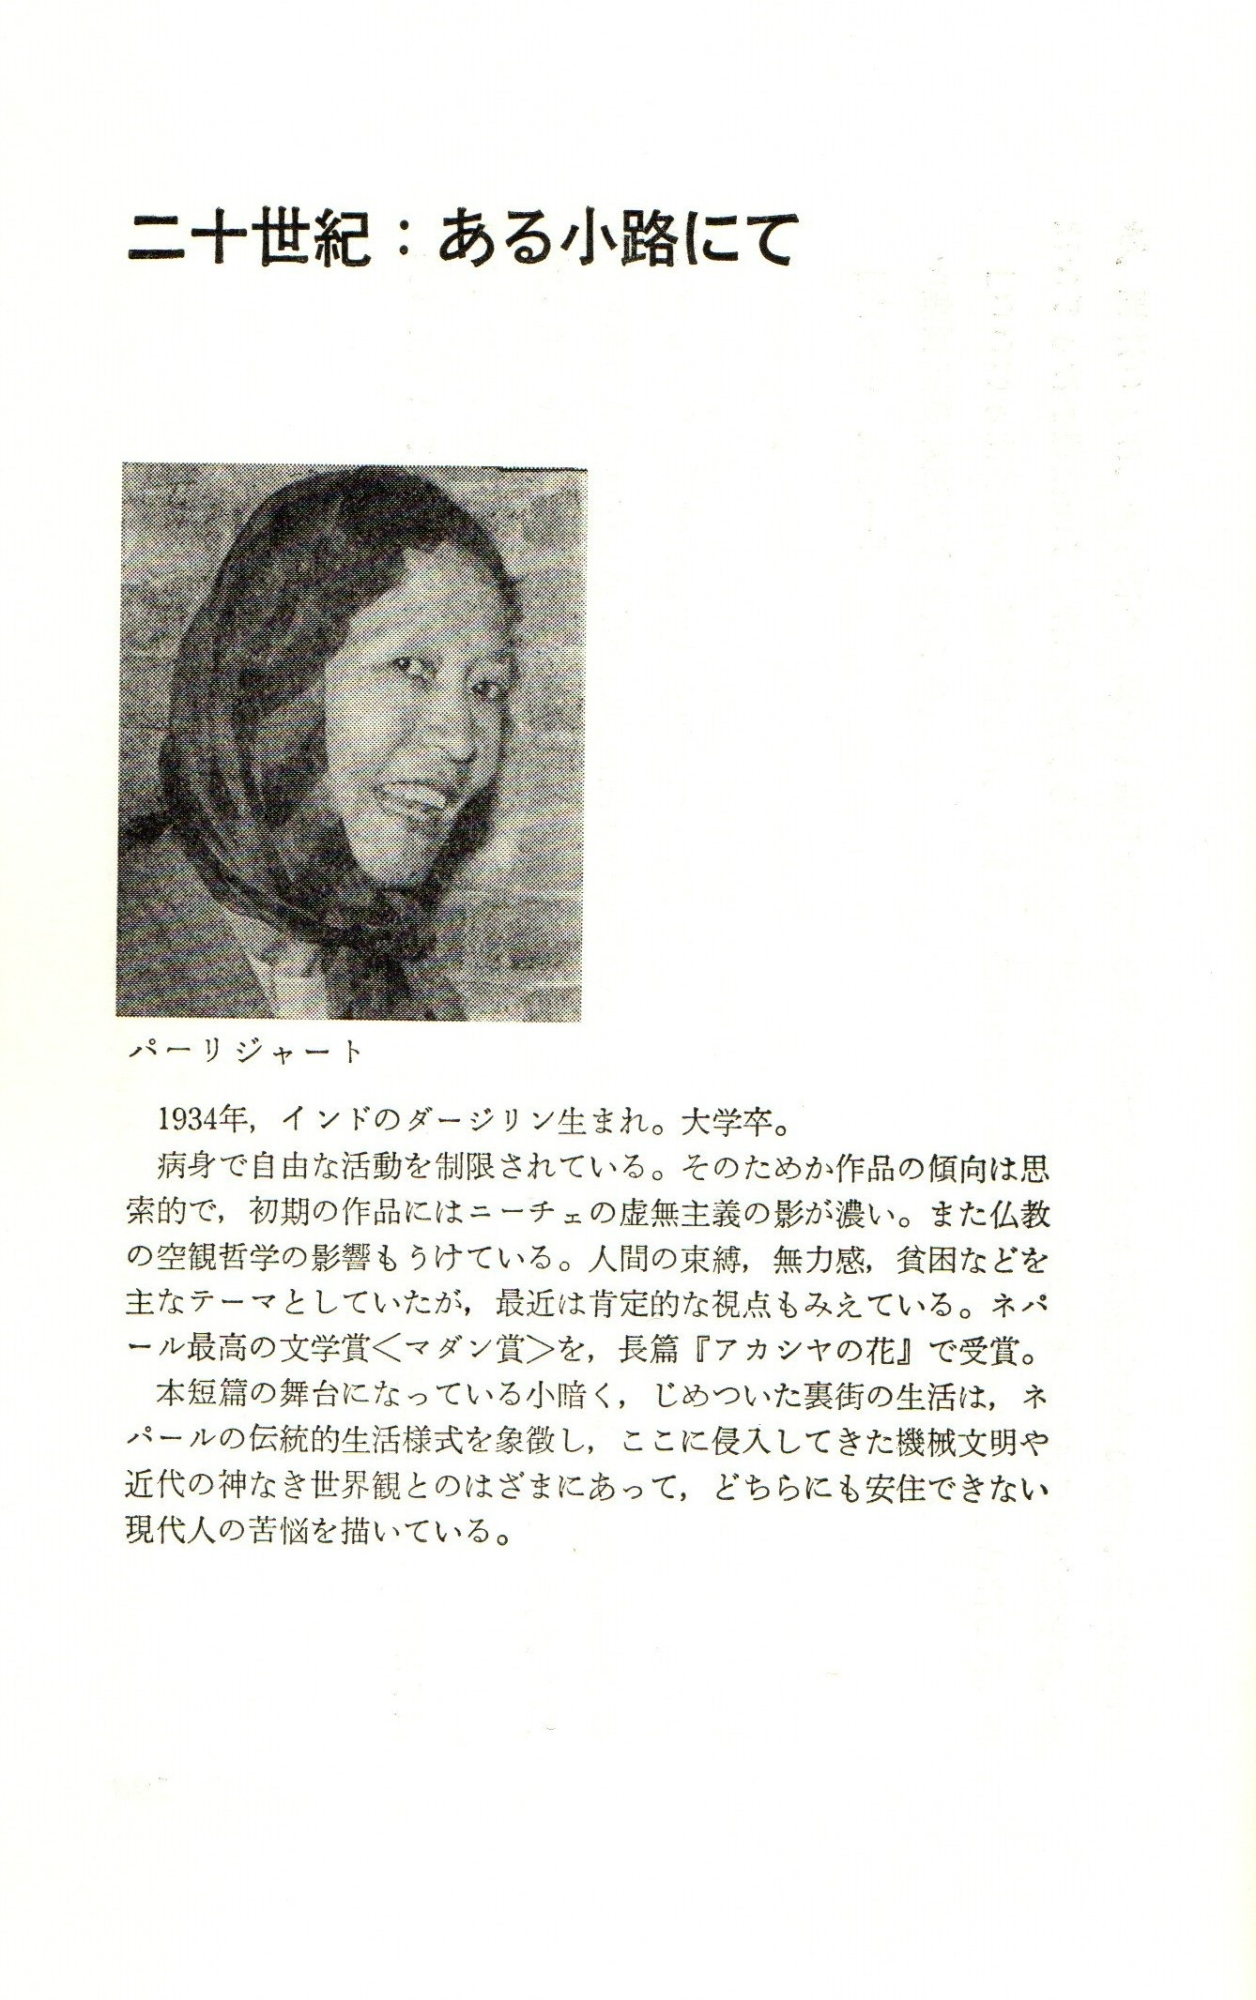 二十世紀：ある小路にて
パーリジャート
1934年，インドのダージリン生まれ。大学卒。
病身で自由な活動を制限されている。そのためか作品の傾向は思
索的で，初期の作品にはニーチェの虚無主義の影が濃い。また仏教
の空観哲学の影響もうけている。人間の束縛，無力感，貧困などを
主なテーマとしていたが，最近は肯定的な視点もみえている。ネパ
ール最高の文学賞＜マダン賞＞を，長篇『アカシヤの花』で受賞。
本短篇の舞台になっている小暗く，じめついた裏街の生活は，ネ
パールの伝統的生活様式を象徴し，ここに侵入してきた機械文明や
近代の神なき世界観とのはざまにあって，どちらにも安住できない
現代人の苦悩を描いている。